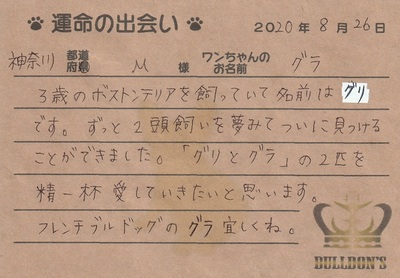 運命の出会い 2020年 8月 26日
神奈川 都道府県 M 様 ワンちゃんのお名前 グラ
3歳のボストンテリアを飼っていて名前は グリ
です。ずっと2頭飼いを夢みてついに見つける
ことができました。「グリとグラ」の2匹を
精一杯愛していきたいと思います。
フレンチブルドッグのグラ宜しくね。
BULLDON'S